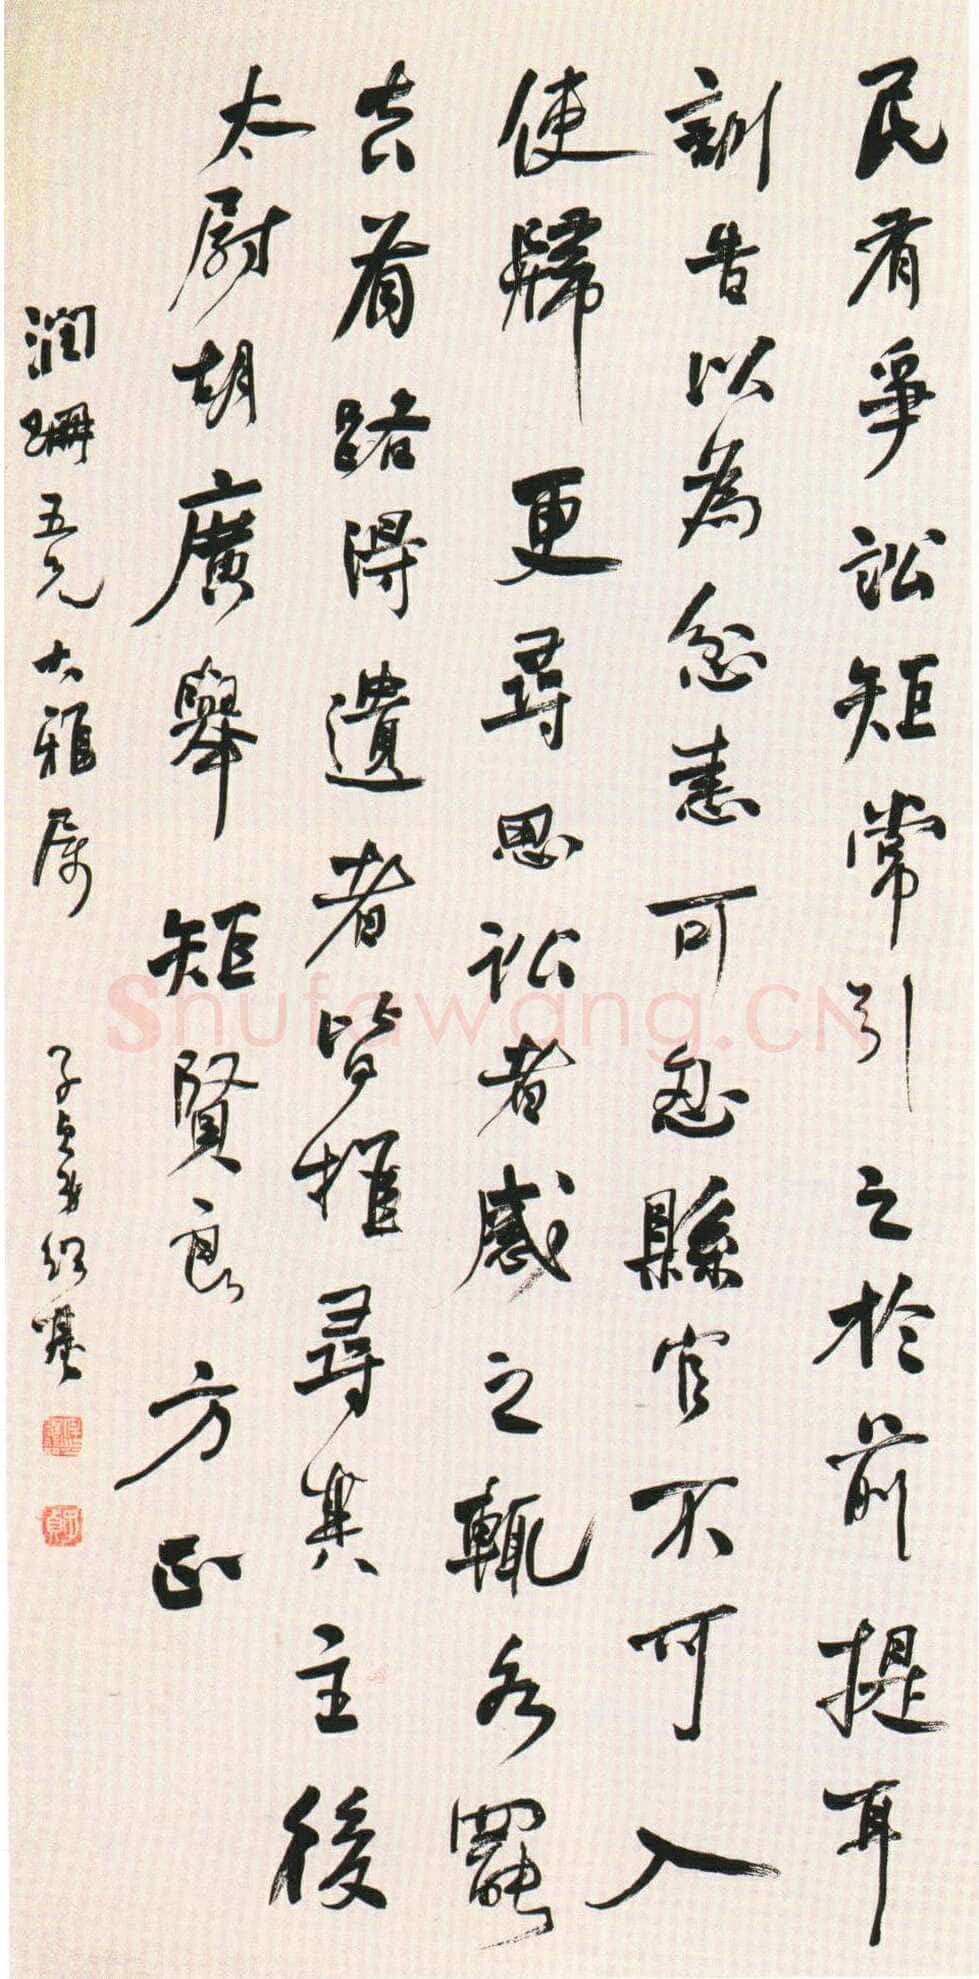 民有爭訟矩常引之於前提耳
訓告以為忿恚可忍縣官不可入
使歸更尋思訟者感之輒各罷
去有路得遺者皆推尋其主後
太尉胡廣舉矩賢良方正
潤珊五兄大雅屬
子貞弟紹基
Shufawang.CN